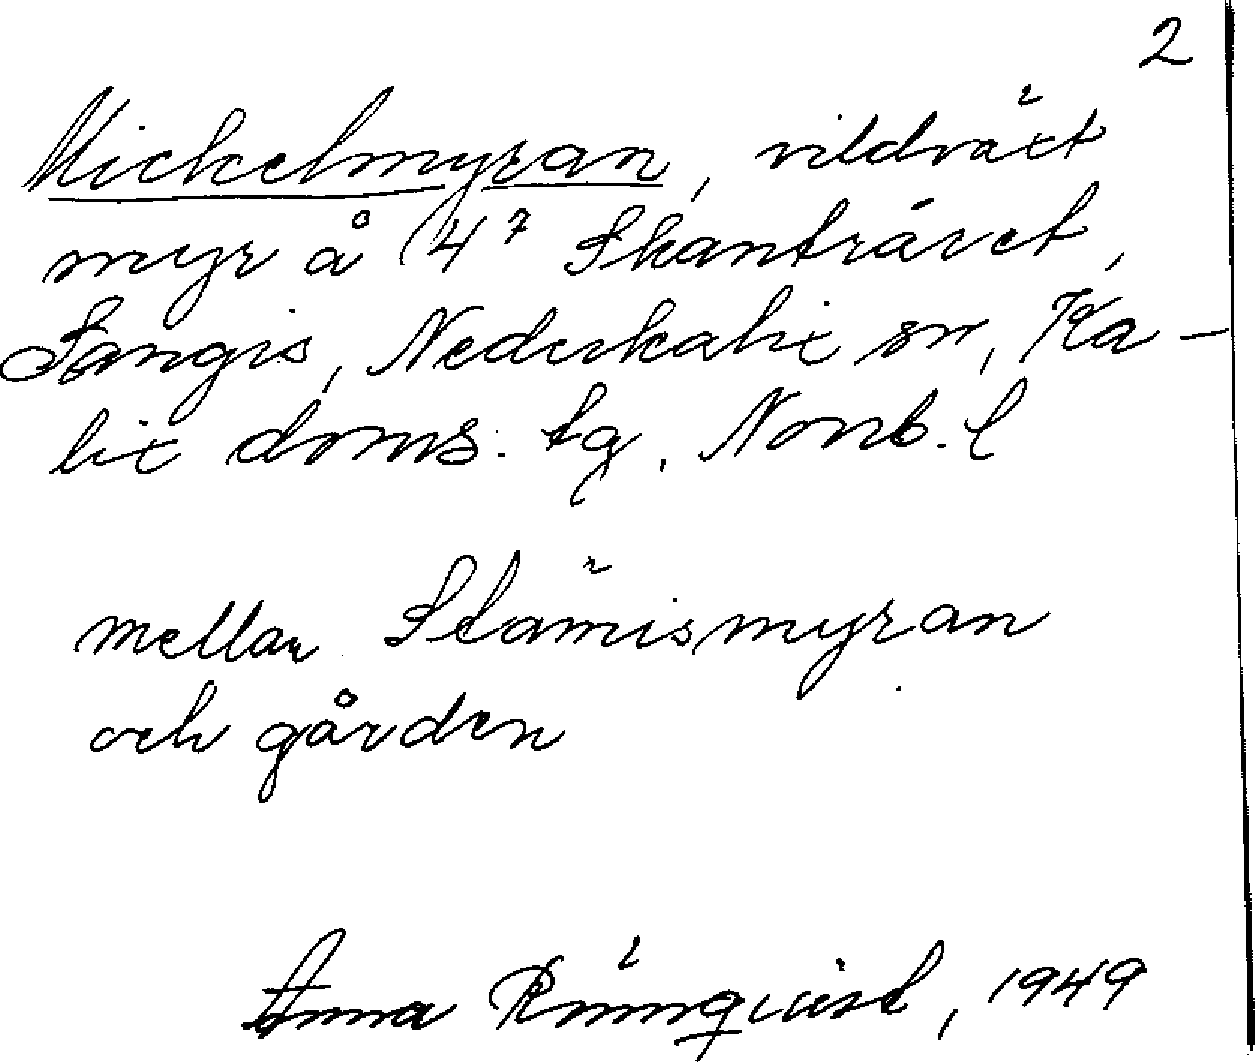 2
Mickelmyran, vildväxt
myr å 4⁷ Skanträret,
Sangis, Nederkalix sn, Ka-
lix doms. tg. Norrb. l
mellan myran
och gården
Anna Rönnqvist, 1949